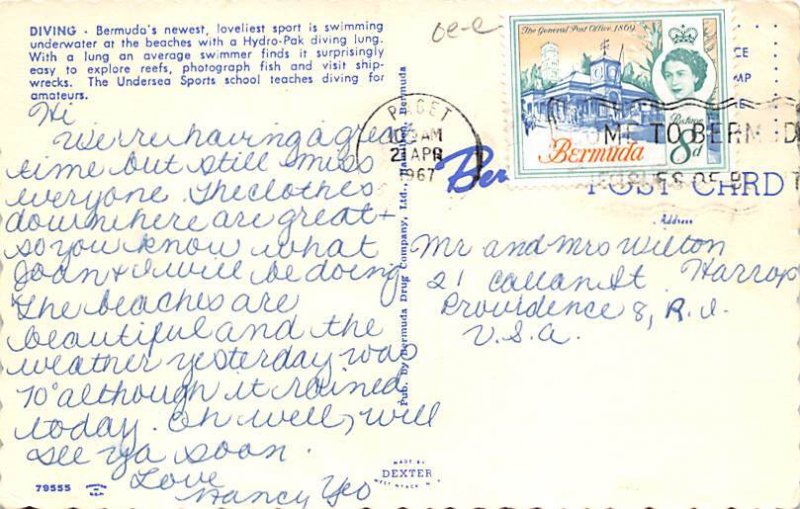 DIVING - Bermuda's newest, loveliest sport is swimming
underwater at the beaches with a Hydro-Pak diving lung.
With a lung an average swimmer finds it surprisingly
easy to explore reefs, photograph fish and visit ship-
wrecks. The Undersea Sports school teaches diving for
amateurs.
Hi
We're having a great
time but still miss
everyone. The clothes
down here are great +
so you know what
Joan + I will be doing
The beaches are
beautiful and the
weather yesterday was
70° although it rained
today. Oh well, will
see ya soon.
Love
Nancy Yeo
79555
MADE BY
DEXTER
WEST NYACK, N.Y.
Pub. by Bermuda Drug Company, Ltd., Hamilton, Bermuda
oe-e
PAGET
AM
APR
1967
Ber
The General Post Office, 1869
Bermuda
8d
POST CARD
Address
Mr and Mrs Wilton
Harrop
21 Callan St.
Providence 8, R.I.
U.S.A.